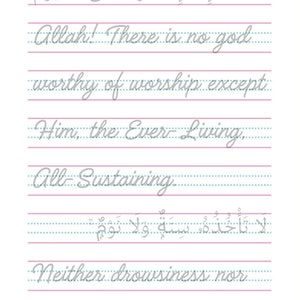 Allah! There is no god
worthy of worship except
Him, the Ever-Living,
All-Sustaining.
لَا تَأْخُذُهُۥ سِنَةٌ وَلَا نَوْمٌ ۚ
Neither drowsiness nor